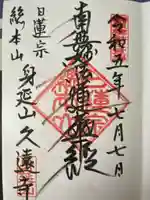 令和五年七月七日
南無妙法蓮華経
日蓮宗
総本山 身延山久遠寺